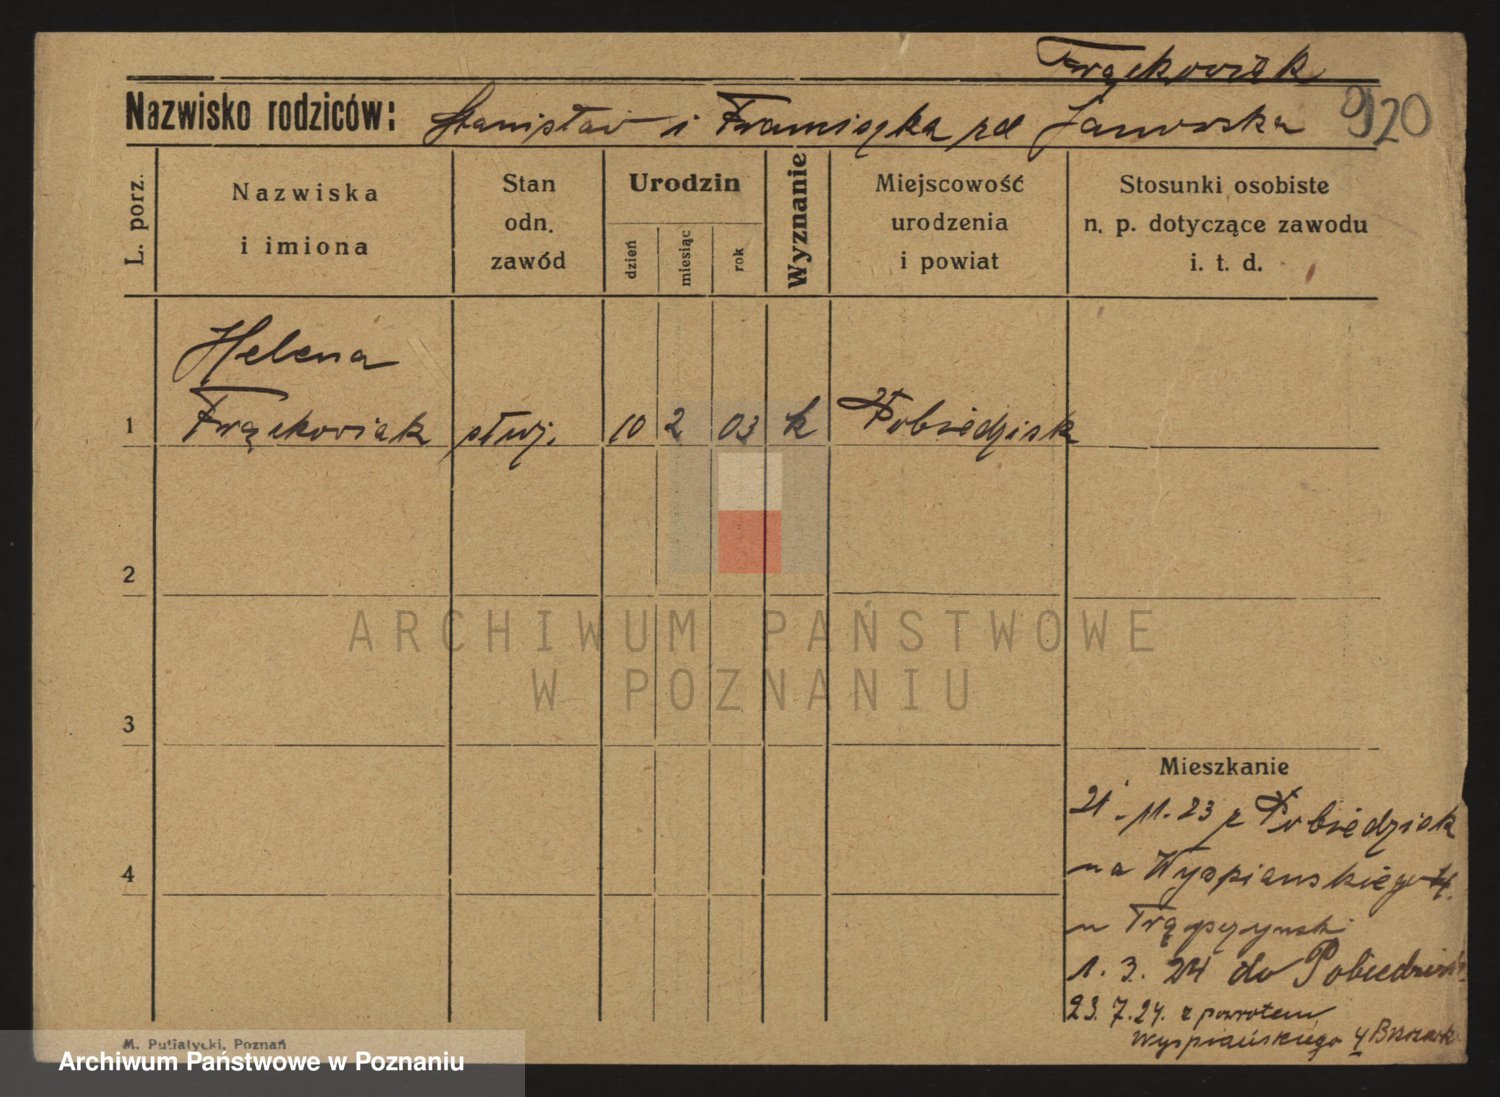 Frąckowiak
Nazwisko rodziców: Stanisław i Franciszka zd Jaworska
920
L. porz.
Nazwiska
i imiona
Stan
odn.
zawód
Urodzin
dzień
miesiąc
rok
Wyznanie
Miejscowość
urodzenia
i powiat
Stosunki osobiste
n. p. dotyczące zawodu
i. t. d.
Helena
1 Frąckowiak służ. 10 2 03 k Pobiedzisk
2
ARCHIWUM PAŃSTWOWE
W POZNANIU
3
Mieszkanie
21.-11.-23 z Pobiedzisk
na Wyspianskiego 4.
u Trąpczynski
4
1. 3. 24 do Pobiedzisk
23. 7. 24. z powrotem
Wyspiańskiego 4
M. Putiatycki, Poznań
Archiwum Państwowe w Poznaniu